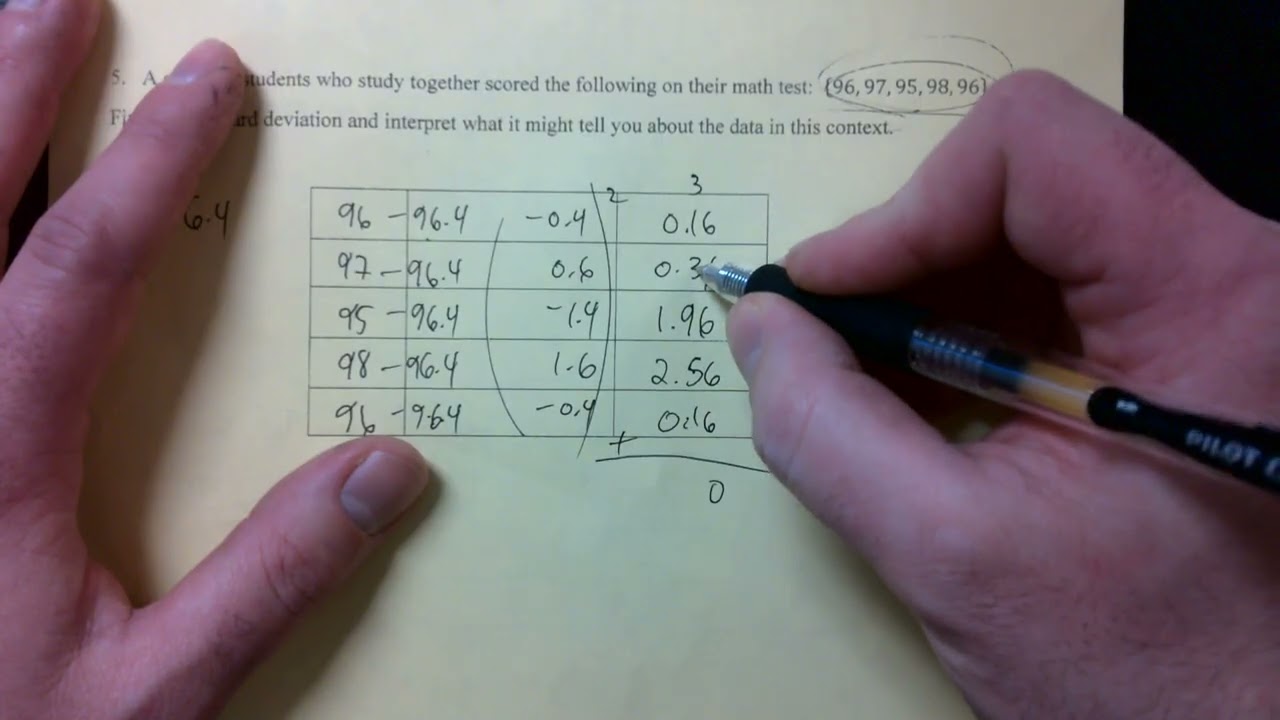 5. A students who study together scored the following on their math test: {96, 97, 95, 98, 96}
deviation and interpret what it might tell you about the data in this context.
6.4
2 3
96 - 96.4 -0.4 0.16
97 - 96.4 0.6 0.36
95 - 96.4 -1.4 1.96
98 - 96.4 1.6 2.56
96 - 964 -0.4 0.16
+
0
PILOT